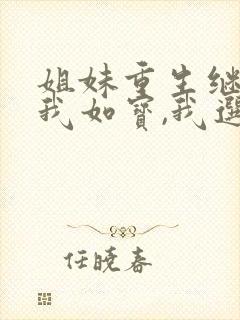 姐妹重生继
我如宝,我选
任晓春